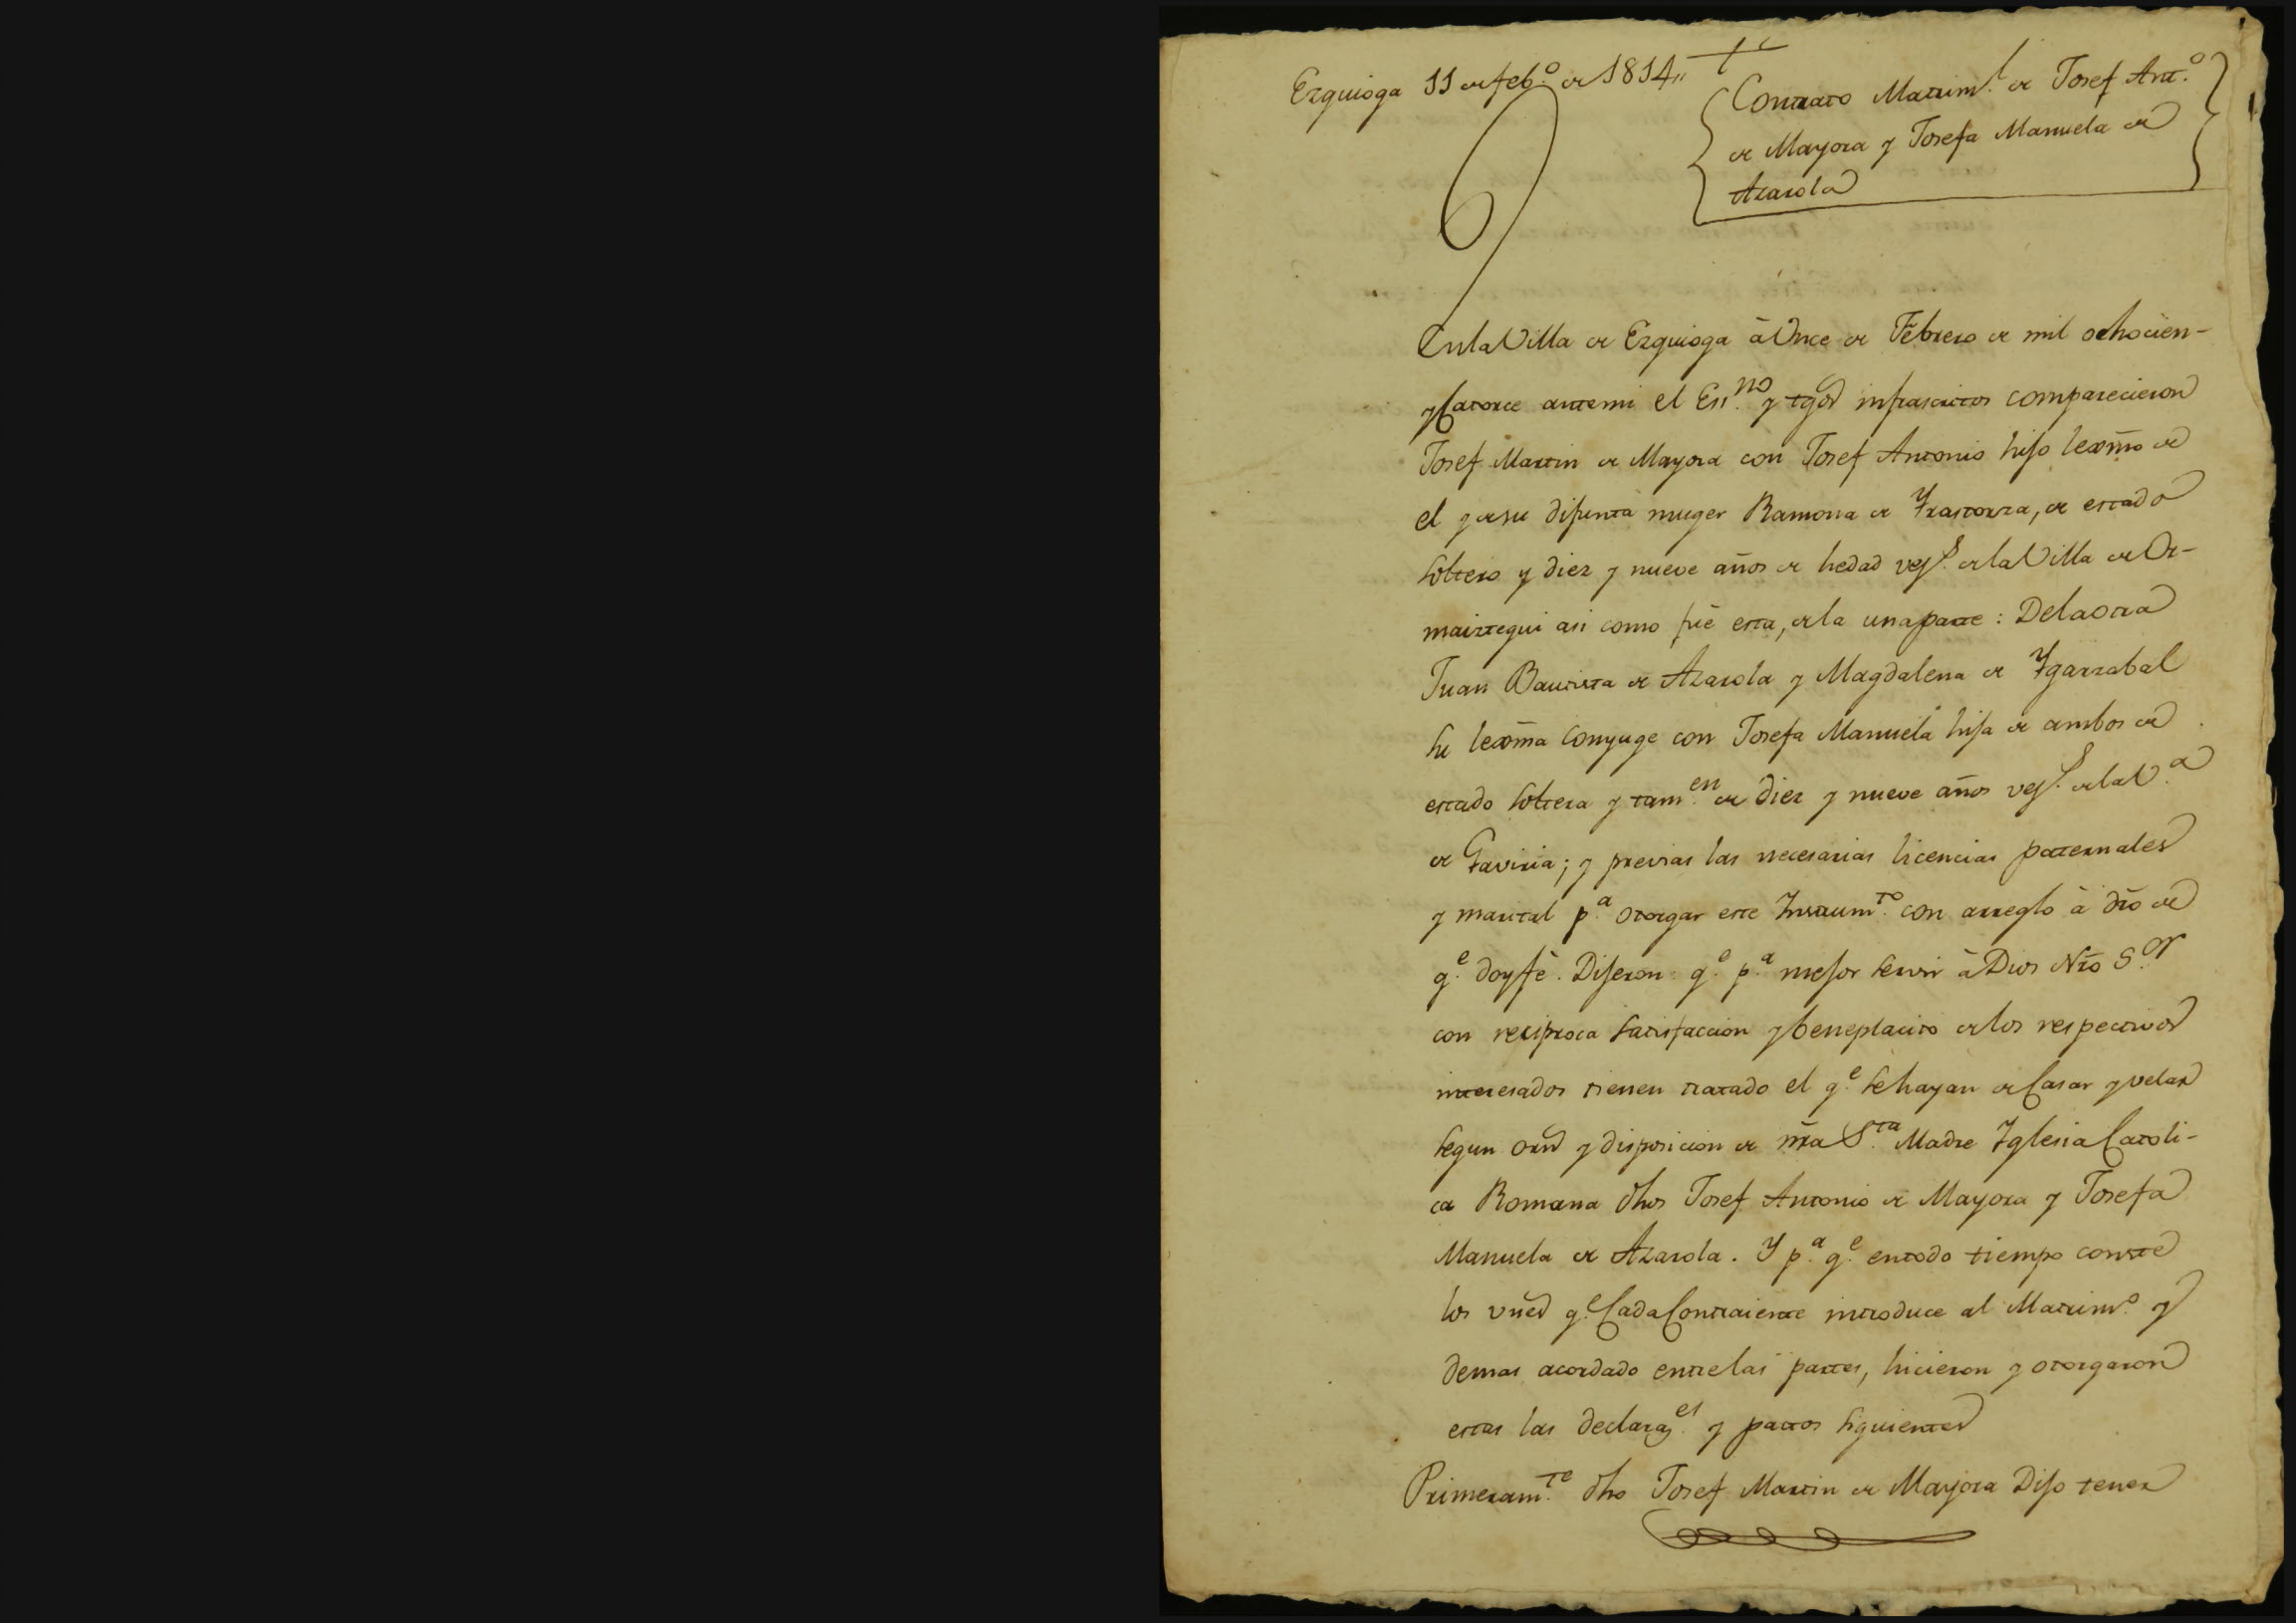 Ezquioga 11 de feb.º de 1814,,
Contrato Matrim.l de Josef Ant.º
de Mayora y Josefa Manuela de
Azarola
En la Villa de Ezquioga à Once de Febrero de mil ochocien-
y Catorce ante mi el Es.no y tgos infrascritos comparecieron
Josef Martin de Mayora con Josef Antonio hijo lexmo de
el y de su difunta muger Ramona de Yrastorza, de estado
soltero y diez y nueve años de hedad vez.s de la Villa de Or-
maiztegui asi como fuè esta, de la una parte: De la otra
Juan Bautista de Azarola y Magdalena de Ygarzabal
su lexma Conyuge con Josefa Manuela hija de ambos de
estado soltera y tam.en de diez y nueve años vez.s de la V.a
de Gaviria; y previas las necesarias licencias paternales
y marital p.a otorgar este Instrum.to con arreglo à dro de
q.e doy fè. Dijeron q.e p.a mejor servir à Dios Nro S.or
con reciproca satisfaccion y beneplacito de los respectivos
interesados tienen tratado el q.e se hayan de Casar y velar
segun orn y disposicion de nra S.ta Madre Yglesia Catoli-
ca Romana dhos Josef Antonio de Mayora y Josefa
Manuela de Azarola. Y p.a q.e en todo tiempo conste
los vnes q.e Cada Contraiente introduce al Matrim.º y
demas acordado entre las partes, hicieron y otorgaron
estas las declaraz.es y pactos siguientes
Primeram.te dho Josef Martin de Mayora Dijo tener